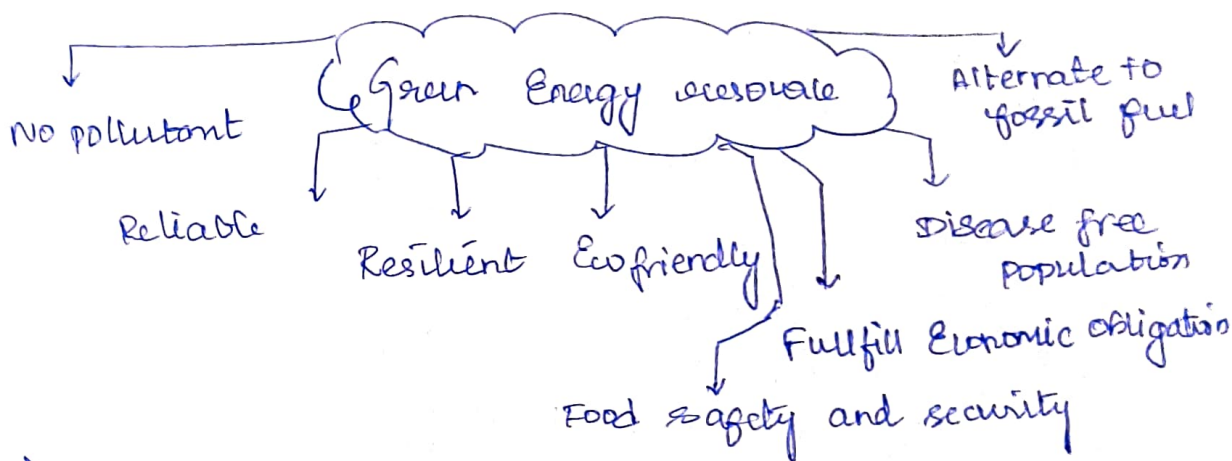 Green Energy resource
Alternate to
fossil fuel
No pollutant
Reliable
Resilient
Eco friendly
Disease free
population
Fullfill Economic obligation
Food safety and security